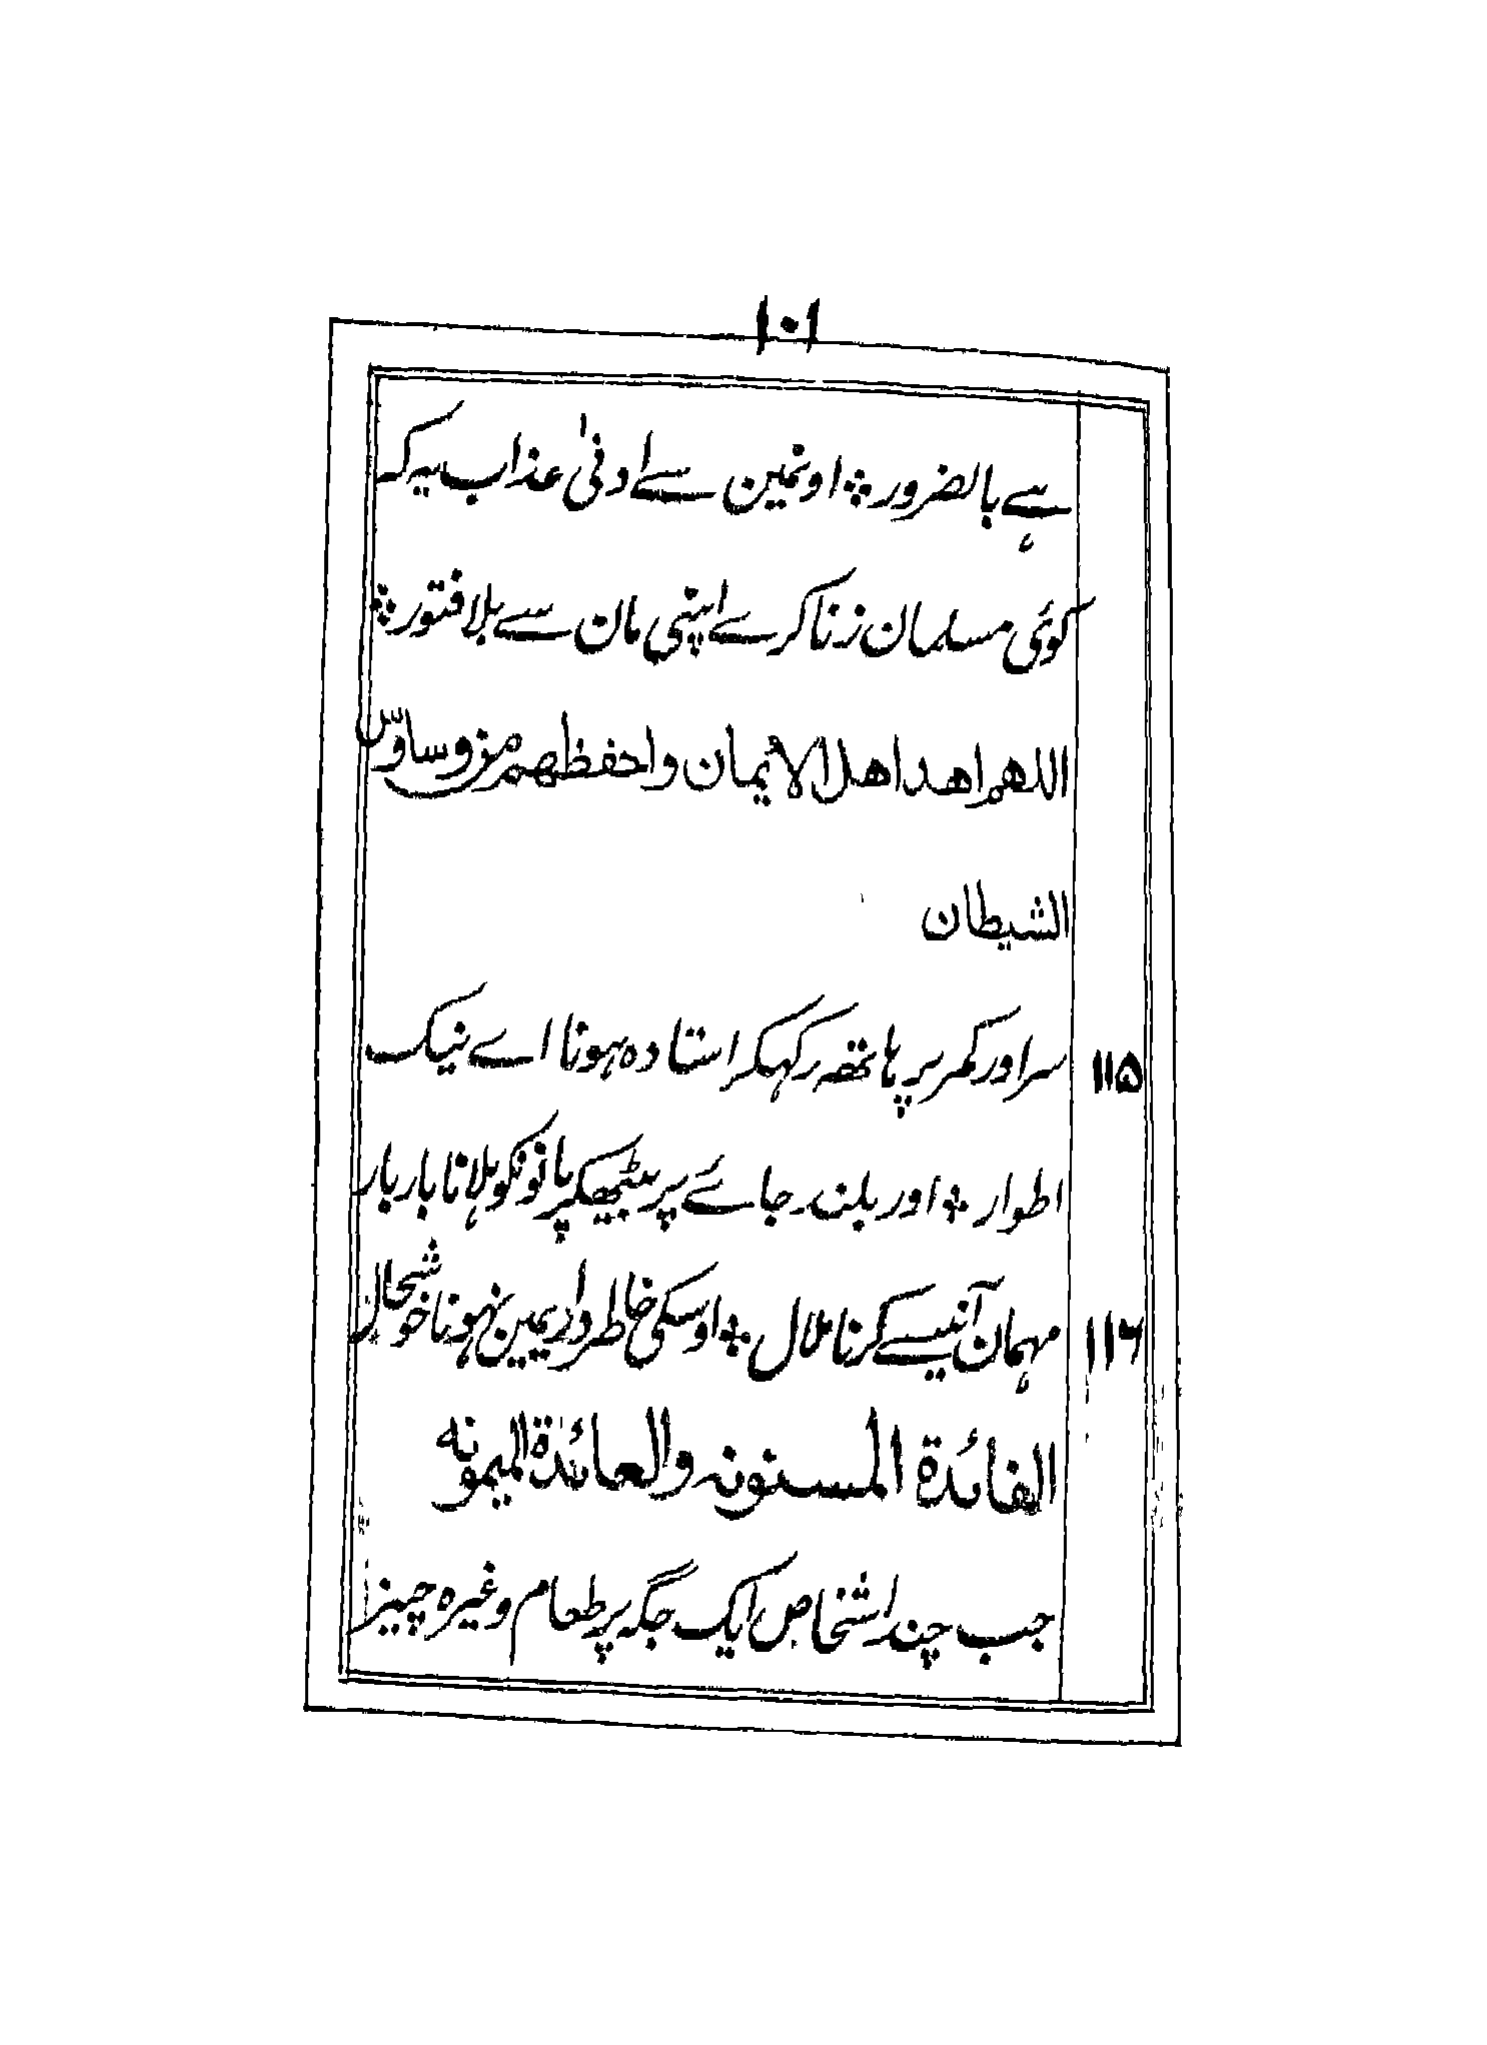 ۱۰۱
ہے بالضرور ؞ اونمین سے ادنیٰ عذاب یہ کہ
کوئی مسلمان زنا کرے اپنی مان سے بلا فتور ؞
اللهم اهد اهل الايمان واحفظهم من وساوس
الشيطان
۱۱۵ سر اور کمر پر ہاتھہ رکہکر استادہ ہونا اے نیک
اطوار ؞ اور بلند جائے پر بیٹھکر پانونکو ہلانا بار بار
۱۱۶ مہمان آنیسے کرنا ملال ؞ اوسکی خاطرداریمین نہونا خوشحال
الفائدة المسنونه والعائدة الميمونه
جب چند اشخاص ایک جگہ پر طعام وغیرہ چیز